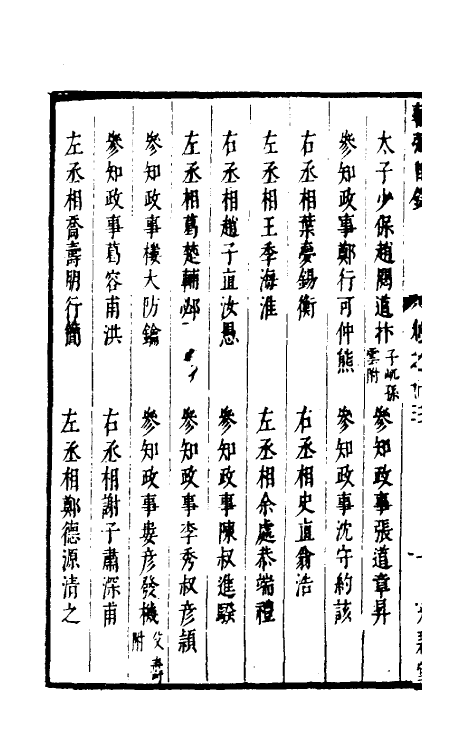 太子少保趙閱道抃 子㞦孫雲附 參知政事張道章昇
參知政事鄭行可仲熊 參知政事沈守約該
右丞相葉夢錫衡 右丞相史直翁浩
左丞相王季海淮 左丞相余處恭端禮
右丞相趙子直汝愚 參知政事陳叔進騤
左丞相葛楚輔邲 參知政事李秀叔彥穎
參知政事樓大防鑰 參知政事婁彥發機 父壽附
參知政事葛容甫洪 右丞相謝子肅深甫
左丞相喬壽朋行簡 左丞相鄭德源清之